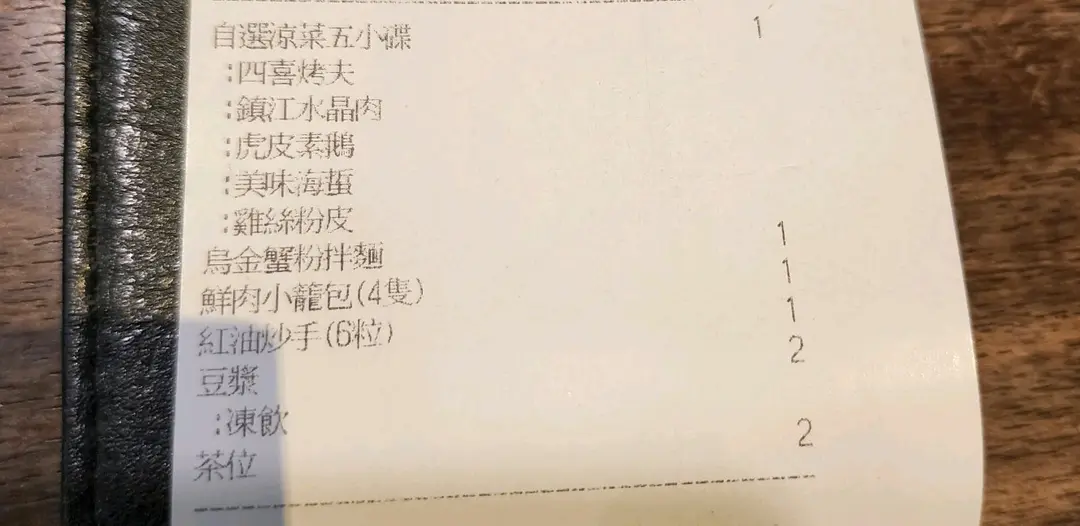 自選涼菜五小碟 1
:四喜烤夫
:鎮江水晶肉
:虎皮素鵝
:美味海蜇
:雞絲粉皮
烏金蟹粉拌麵 1
鮮肉小籠包(4隻) 1
紅油炒手(6粒) 1
豆漿 2
:凍飲
茶位 2